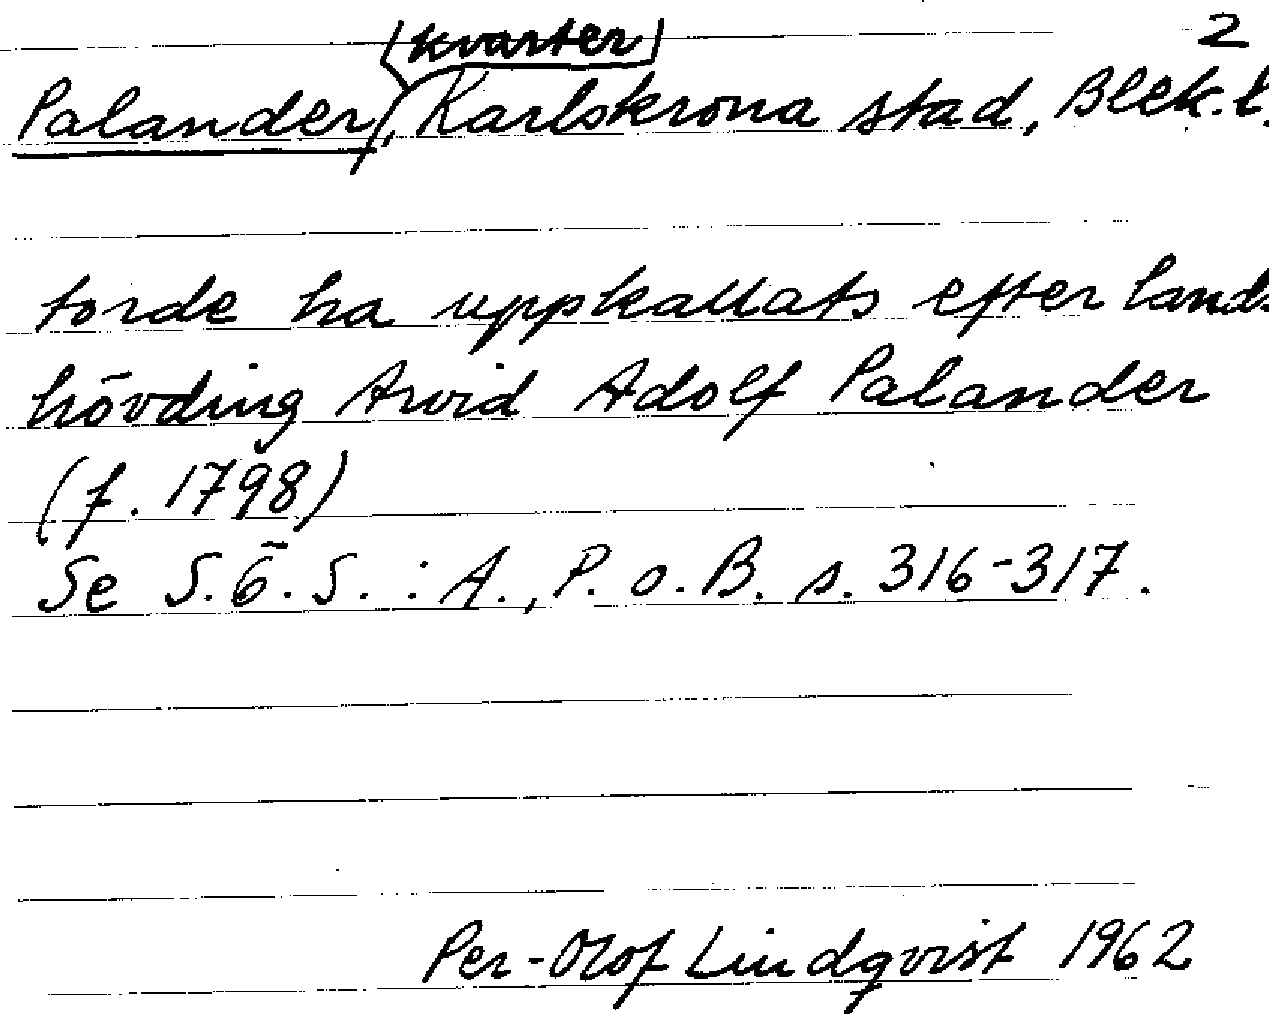 (kvarter) 2
Palander, Karlskrona stad, Blek. l.
torde ha uppkallats efter lands
hövding Arvid Adolf Palander
(f. 1798)
Se S.Ö.S. : A., P. o. B. s. 316-317.
Per-Olof Lindqvist 1962